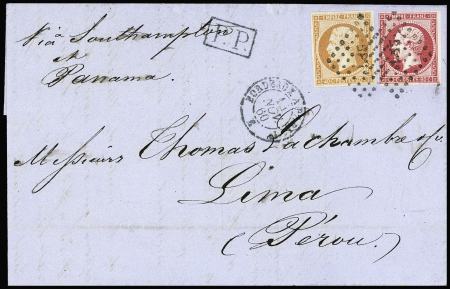 Viâ Southampton
et
Panama.
P.P.
EMPIRE FRANC.
EMPIRE FRANC.
BORDEAUX A PARIS
60
Messieurs Thomas Lachambre & Co.
Lima
(Pérou)